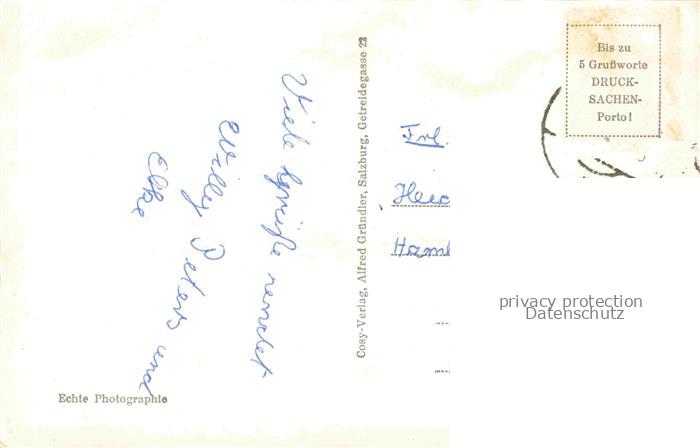 Viele Grüße sendet
Willy Peters und
Elke
Echte Photographie
Cosy-Verlag, Alfred Gründler, Salzburg, Getreidegasse 22
Bis zu
5 Grußworte
DRUCK-
SACHEN-
Porto!
Frl.
privacy protection
Datenschutz